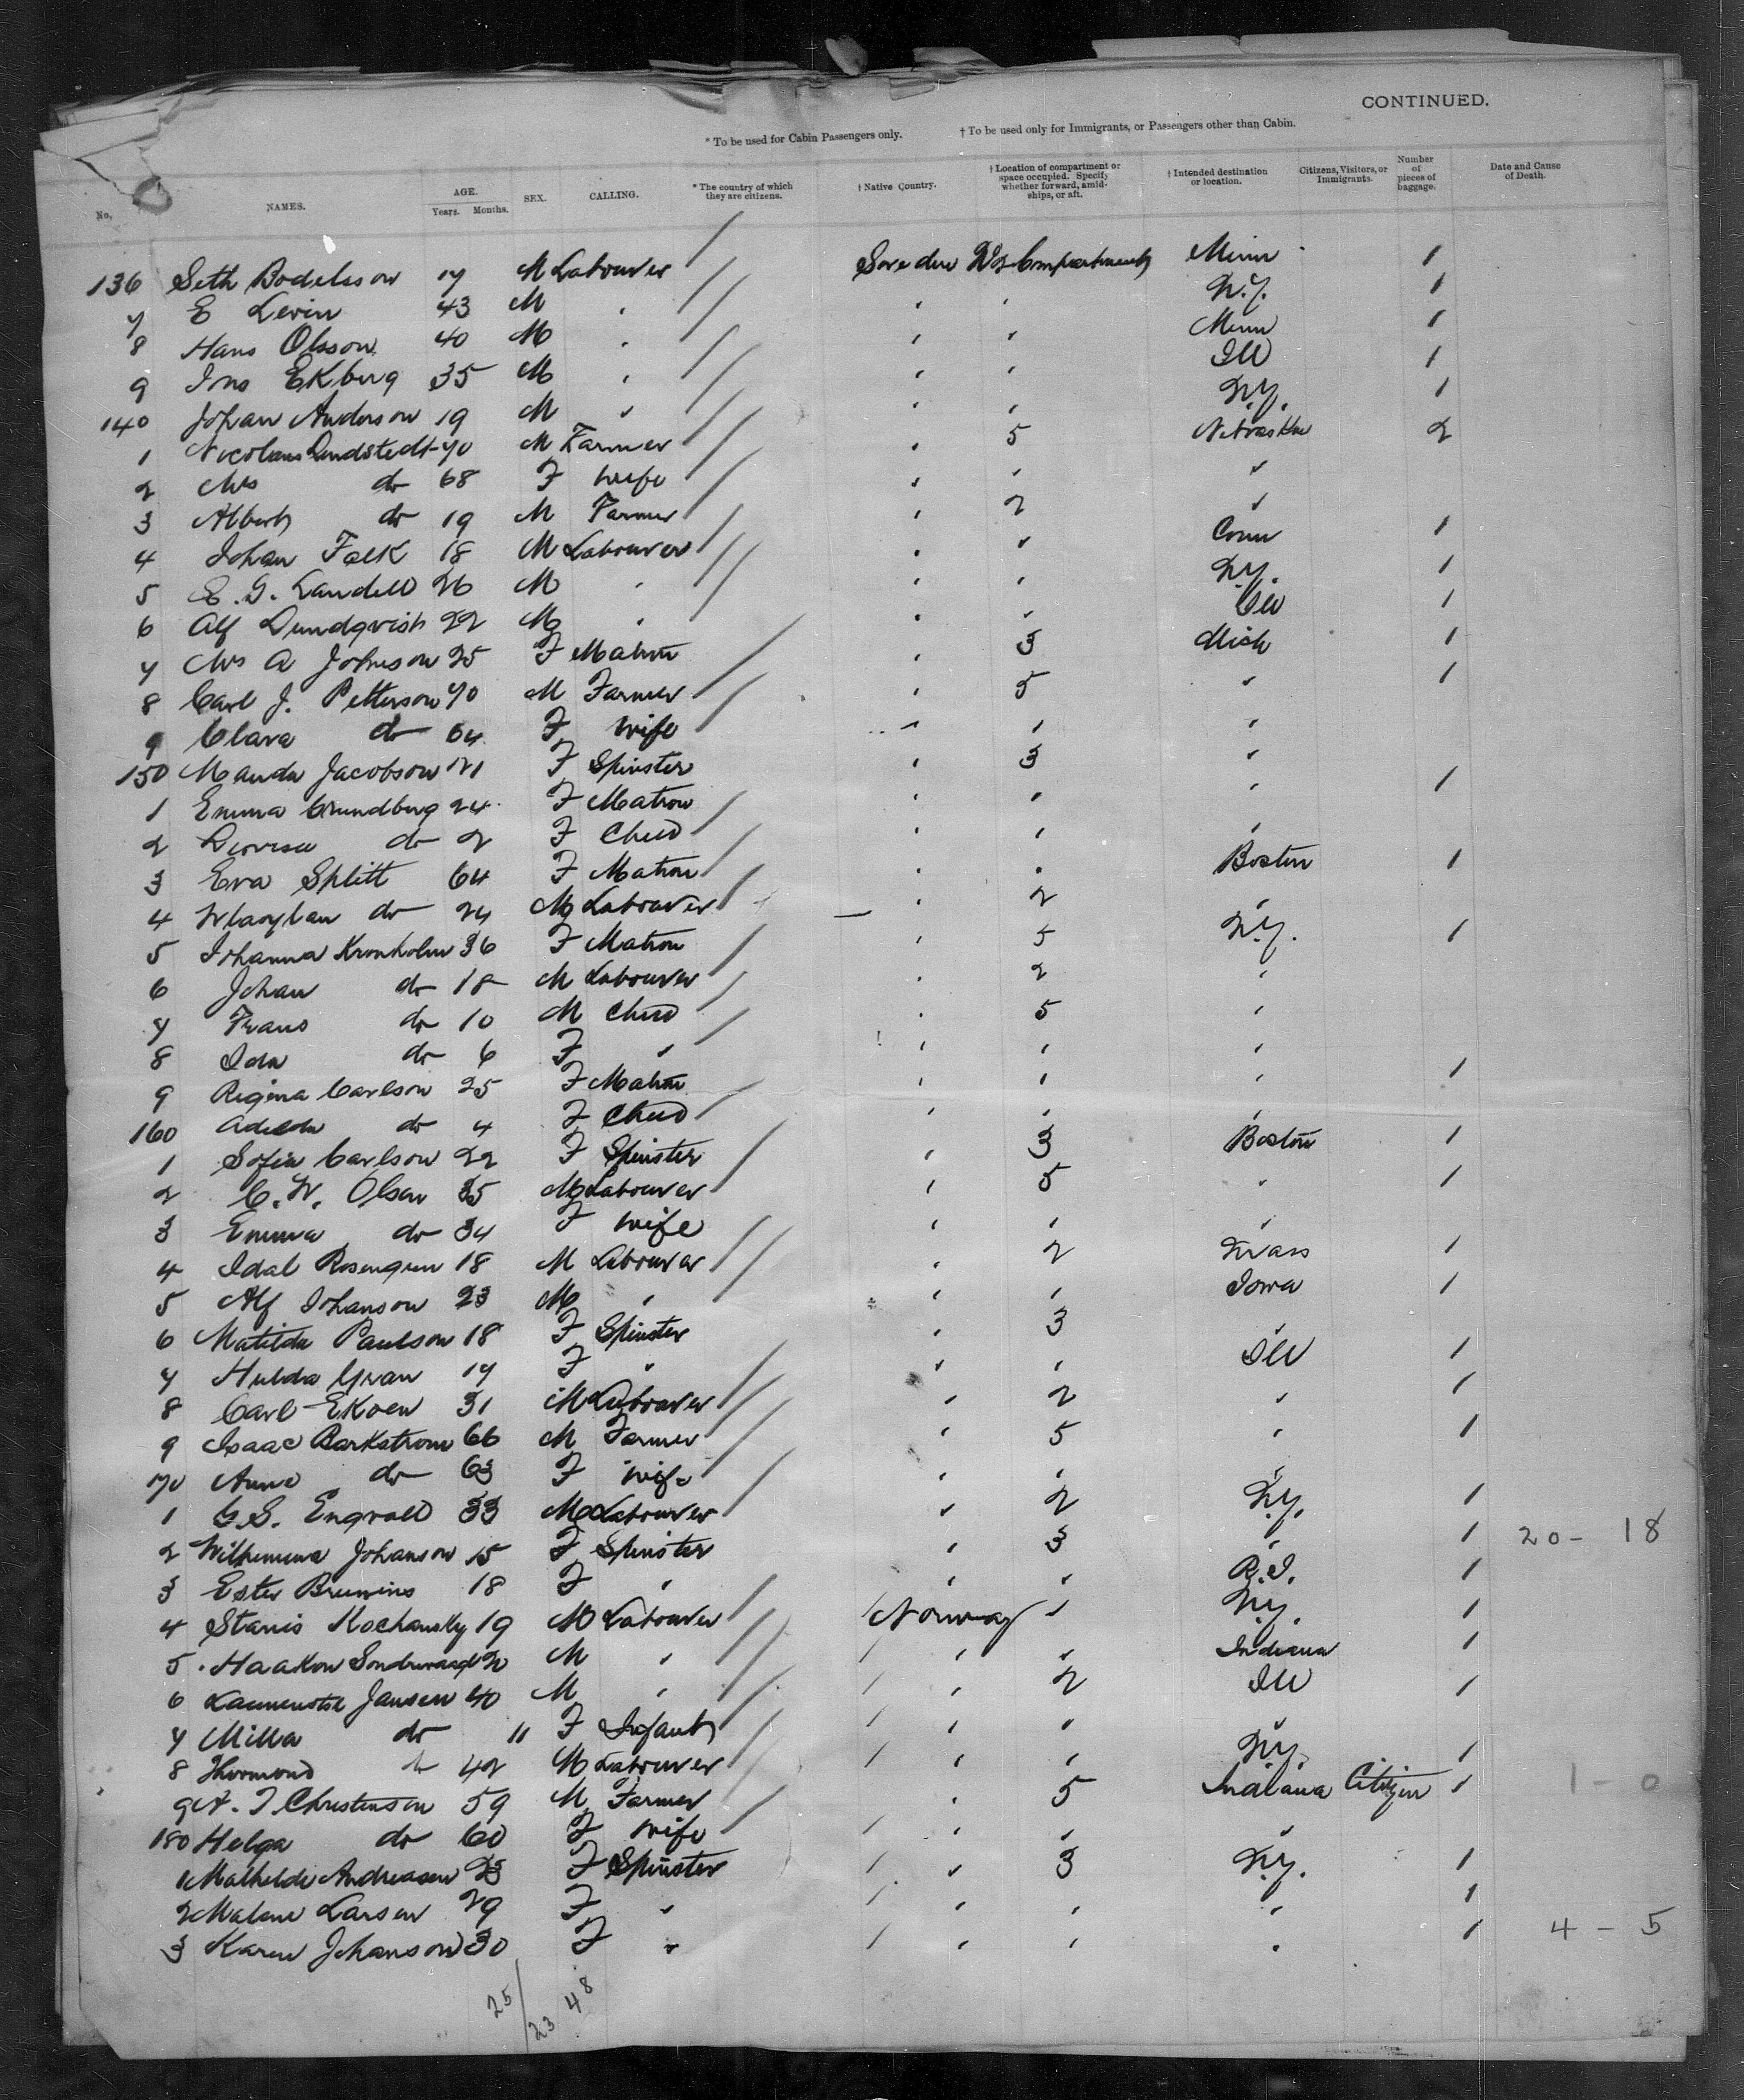 CONTINUED.
* To be used for Cabin Passengers only. † To be used only for Immigrants, or Passengers other than Cabin.
No. NAMES. AGE. Years. Months. SEX. CALLING. * The country of which they are citizens. † Native Country. † Location of compartment or space occupied. Specify whether forward, amidships, or aft. † Intended destination or location. Citizens, Visitors, or Immigrants. Number of pieces of baggage. Date and Cause of Death.
136 Seth Bodelsson 17 M Labourer Sweden Compartment Minn 1
7 E Levin 43 M " " " N.Y. 1
8 Hans Olsson 40 M " " " Minn 1
9 Jons Ekberg 35 M " " " Ill 1
140 Johan Anderson 19 M " " " N.Y. 1
1 Nicolaus Lindstedt 70 M Farmer " 5 Nebraska 2
2 Mrs do 68 F Wife " " "
3 Albert do 19 M Farmer " 2 "
4 Johan Falk 18 M Labourer " " Conn 1
5 E. G. Landell 26 M " " " N.Y. 1
6 Alf Lundqvist 22 M " " " Ill 1
7 Mrs A Johnson 25 F Matron " 3 Mich 1
8 Carl J. Petterson 70 M Farmer " 5 " 1
9 Clara do 64 F Wife " " "
150 Manda Jacobson 21 F Spinster " 3 "
1 Emma Grundberg 24 F Matron " " " 1
2 do 2 F Child " " "
3 Eva Splitt 64 F Matron " " Boston 1
4 do 24 M Labourer " 2 "
5 Johanna Kronholm 36 F Matron " 5 N.Y. 1
6 Johan do 18 M Labourer " 2 "
7 Frans do 10 M Child " 5 "
8 Ida do 6 F " " " "
9 Regina Carlson 25 F Matron " " " 1
160 do 4 F Child " " "
1 Sofia Carlson 22 F Spinster " 3 Boston 1
2 C. W. Olsen 35 M Labourer " 5 " 1
3 Emma do 34 F Wife " " "
4 Idal Rosengren 18 M Labourer " 2 1
5 Alf Johanson 23 M " " " Iowa 1
6 Matilda Paulson 18 F Spinster " 3 "
7 Hulda 17 F " " " Ill 1
8 Carl Ekoen 31 M Labourer " 2 " 1
9 Isaac Barkstrom 66 M Farmer " 5 " 1
170 Anna do 63 F Wife " " "
1 G. S. Engvall 33 M Labourer " 2 N.Y. 1
2 Wilhemina Johanson 15 F Spinster " 3 " 1 20 - 18
3 Ester 18 F " " " R.I. 1
4 Stanis Kochansky 19 M Labourer Norway " N.Y. 1
5 Haakon 20 M " " " Indiana 1
6 Jansen 40 M " " 2 Ill 1
7 Milla do 11 F Infant " " "
8 do 42 M Labourer " " N.Y. 1
9 Christensen 59 M Farmer " 5 Indiana Citizen 1 1 - 0
180 Helga do 60 F Wife " " "
1 Mathilde Andreasen 23 F Spinster " 3 N.Y. 1
2 Malene Larsen 29 F " " " " 1
3 Karen Johanson 30 F " " " " 1 4 - 5
25/23 48